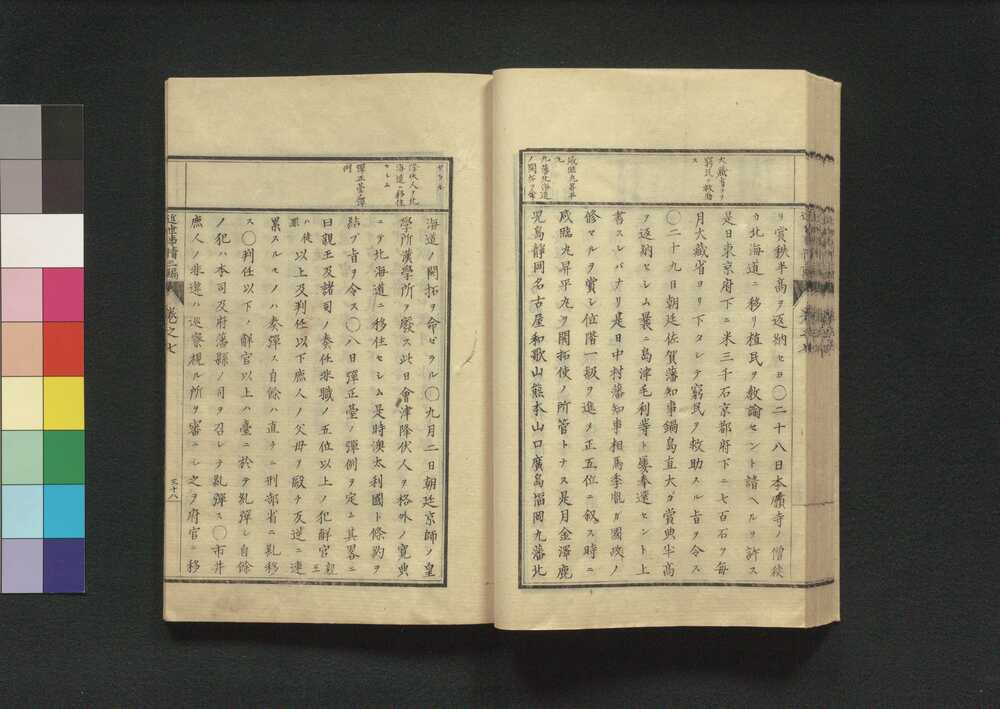 大藏省ヨリ
窮民ヲ救助
ス
咸臨丸昇平
九藩北海道
ノ開拓ヲ命
リ賞秩半高ヲ返納セヨ〇二十八日本願寺ノ僧徒
カ北海道ニ移リ植民ヲ教諭セント請ヘルヲ許ス
是日東京府下ニ米三千石京都府下ニ七百石ヲ毎
月大藏省ヨリ下タシテ窮民ヲ救助スル旨ヲ令ス
〇二十九日朝廷佐賀藩知事鍋島直大ガ賞典半高
ヲ返納セシム曩ニ島津毛利等ト屢奉還セント上
書スレバナリ是日中村藩知事相馬季胤ガ國政ノ
修マルヲ賞シ位階一級ヲ進メ正五位ニ叙ス時ニ
咸臨丸昇平丸ヲ開拓使ノ所管トナス是月金澤鹿
児島靜岡名古屋和歌山熊本山口廣島福岡九藩北
ゼラル
降伏人ヲ北
海道ニ移住
セシム
彈正臺ノ彈
例
海道ノ開拓ヲ命ゼラル〇九月二日朝廷京師ノ皇
學所漢學所ヲ廢ス此日會津降伏人ヲ格外ノ寛典
ニテ北海道ニ移住セシム是時澳太利國ト條約ヲ
結ブ旨ヲ令ス〇八日彈正臺ノ彈例ヲ定ム其畧ニ
曰親王及諸司ノ奏任非職ノ五位以上ノ犯解官親王
ハ徒罪以上及判任以下庶人ノ父母ヲ毆チ反逆ニ連
累スルモノハ奏彈ス自餘ハ直チニ刑部省ニ糺移
ス〇判任以下ノ解官以上ハ臺ニ於テ糺彈シ自餘
ノ犯ハ本司及府藩縣ノ司ヲ召シテ糺彈ス〇市井
庶人ノ非違ハ巡察視ル所ヲ審ニシ之ヲ府官ニ移
近世事情三編
巻之七
三十八